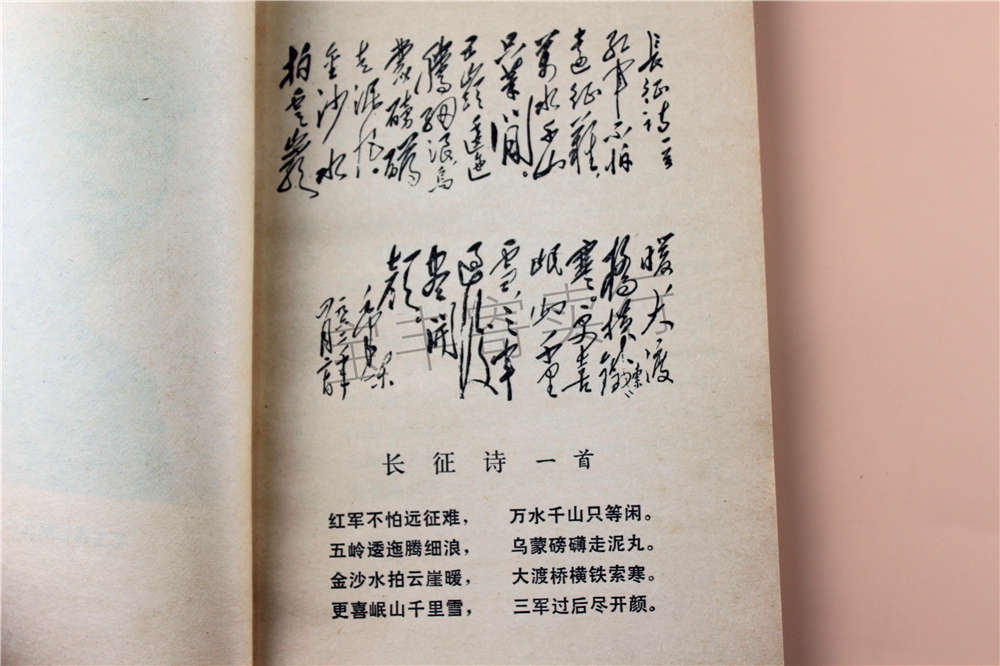 長征诗一首
红軍不怕
遠征難，
萬水千山
只等閒。
五嶺逶迤
騰細浪烏
蒙磅礴
走泥丸。
金沙水
拍雲崖
暖大渡
橋橫鐵索
寒。更喜
岷山千里
雪，三軍
過後
盡開
顏。
毛泽东
长征诗一首
红军不怕远征难， 万水千山只等闲。
五岭逶迤腾细浪， 乌蒙磅礴走泥丸。
金沙水拍云崖暖， 大渡桥横铁索寒。
更喜岷山千里雪， 三军过后尽开颜。